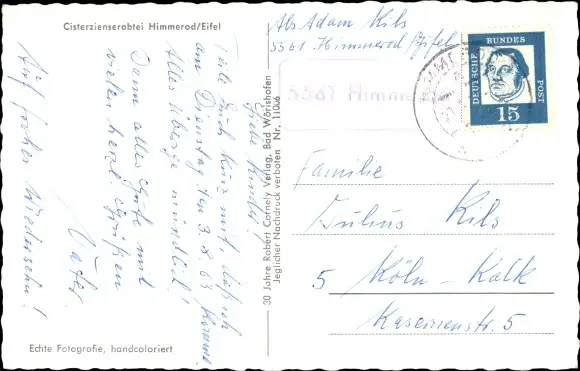 Cisterzienserabtei Himmerod/Eifel
Liebe Kinder!
Teile Euch kurz mit daß ich
am Dienstag den 3.8.63 komme.
Alles übrige mündlich!
Dann alles Gute und
vielen herzl Grüßen
Vater.
Auf frohes Wiedersehn!
Echte Fotografie, handcoloriert
30 Jahre Robert Cornely Verlag, Bad Wörishofen
Jeglicher Nachdruck verboten Nr. 11006
Abs Adam Kils
5561 Himmerod/Eifel
5561 Himmerod
DEUTSCHE BUNDES POST
15
Familie
Julius Kils
5 Köln-Kalk
Kasernenstr. 5